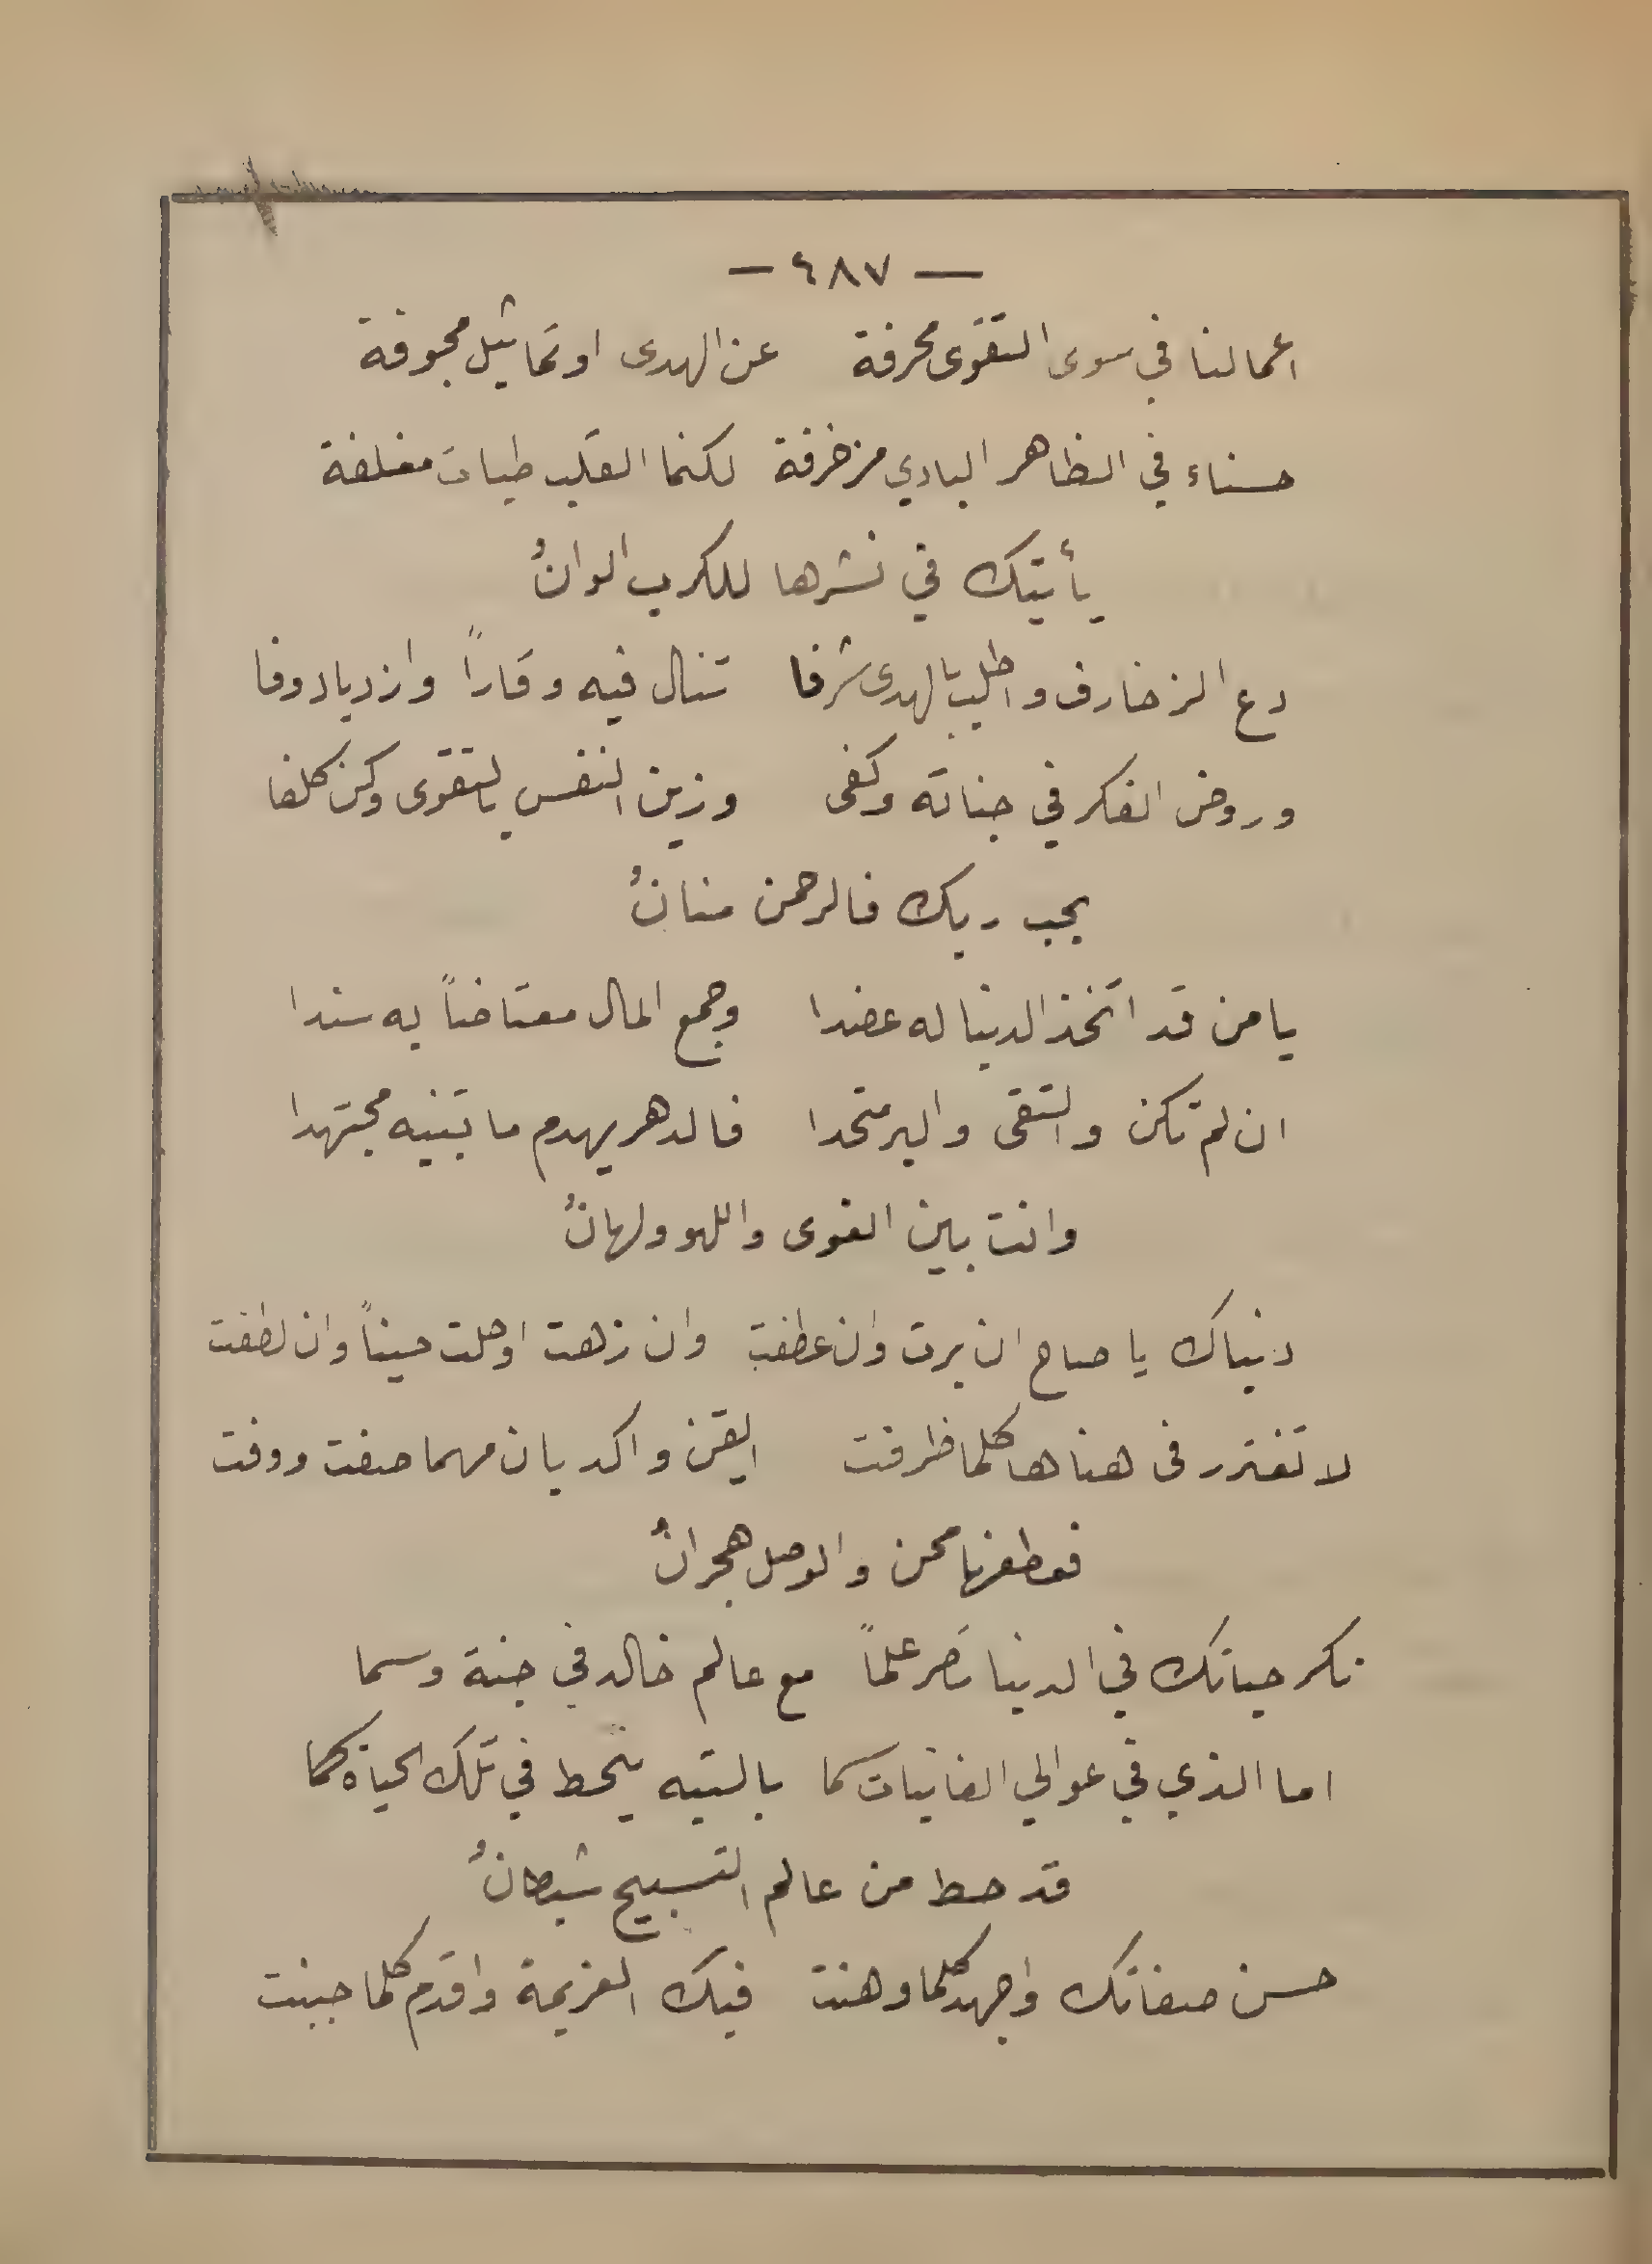 — ٤٨٧ —
اعمالنا في سوى التقوى محرفة عن الهدى او تماثيل مجوفة
حسناء في الظاهر البادي مزخرفة لكنما القلب طيات مغلفة
يأتيك في نشرها للكرب الوانُ
دع الزخارف واطلب بالهدى شرفا تنال فيه وقاراً وازدياد وفا
وروض الفكر في جناته وكفى وزين النفس بالتقوى وكن كلفا
بحب ربك فالرحمن منانُ
يا من قد اتخذ الدنيا له عضدا وجمع المال معتاضاً به سندا
ان لم تكن والتقى والبر متحدا فالدهر يهدم ما تبنيه مجتهدا
وانت بين الغوى واللهو ولهانُ
دنياك يا صاح ان برت وان عطفت وان زهت او حلت حيناً وان لطفت
لا تغترر فى هناها كلما ظرفت ايقن واكد بان مهما صفت ووفت
فعطفها محن والوصل هجرانُ
ذكر حياتك في الدنيا تصر علماً مع عالم خالد في جنة وسما
اما الذي في عوالي الفانيات سما بالتيه ينحط في تلك الحياة كما
قد حط من عالم التسبيح شيطانُ
حسن صفاتك واجهد كلما وهنت فيك العزيمة واقدم كلما جبنت